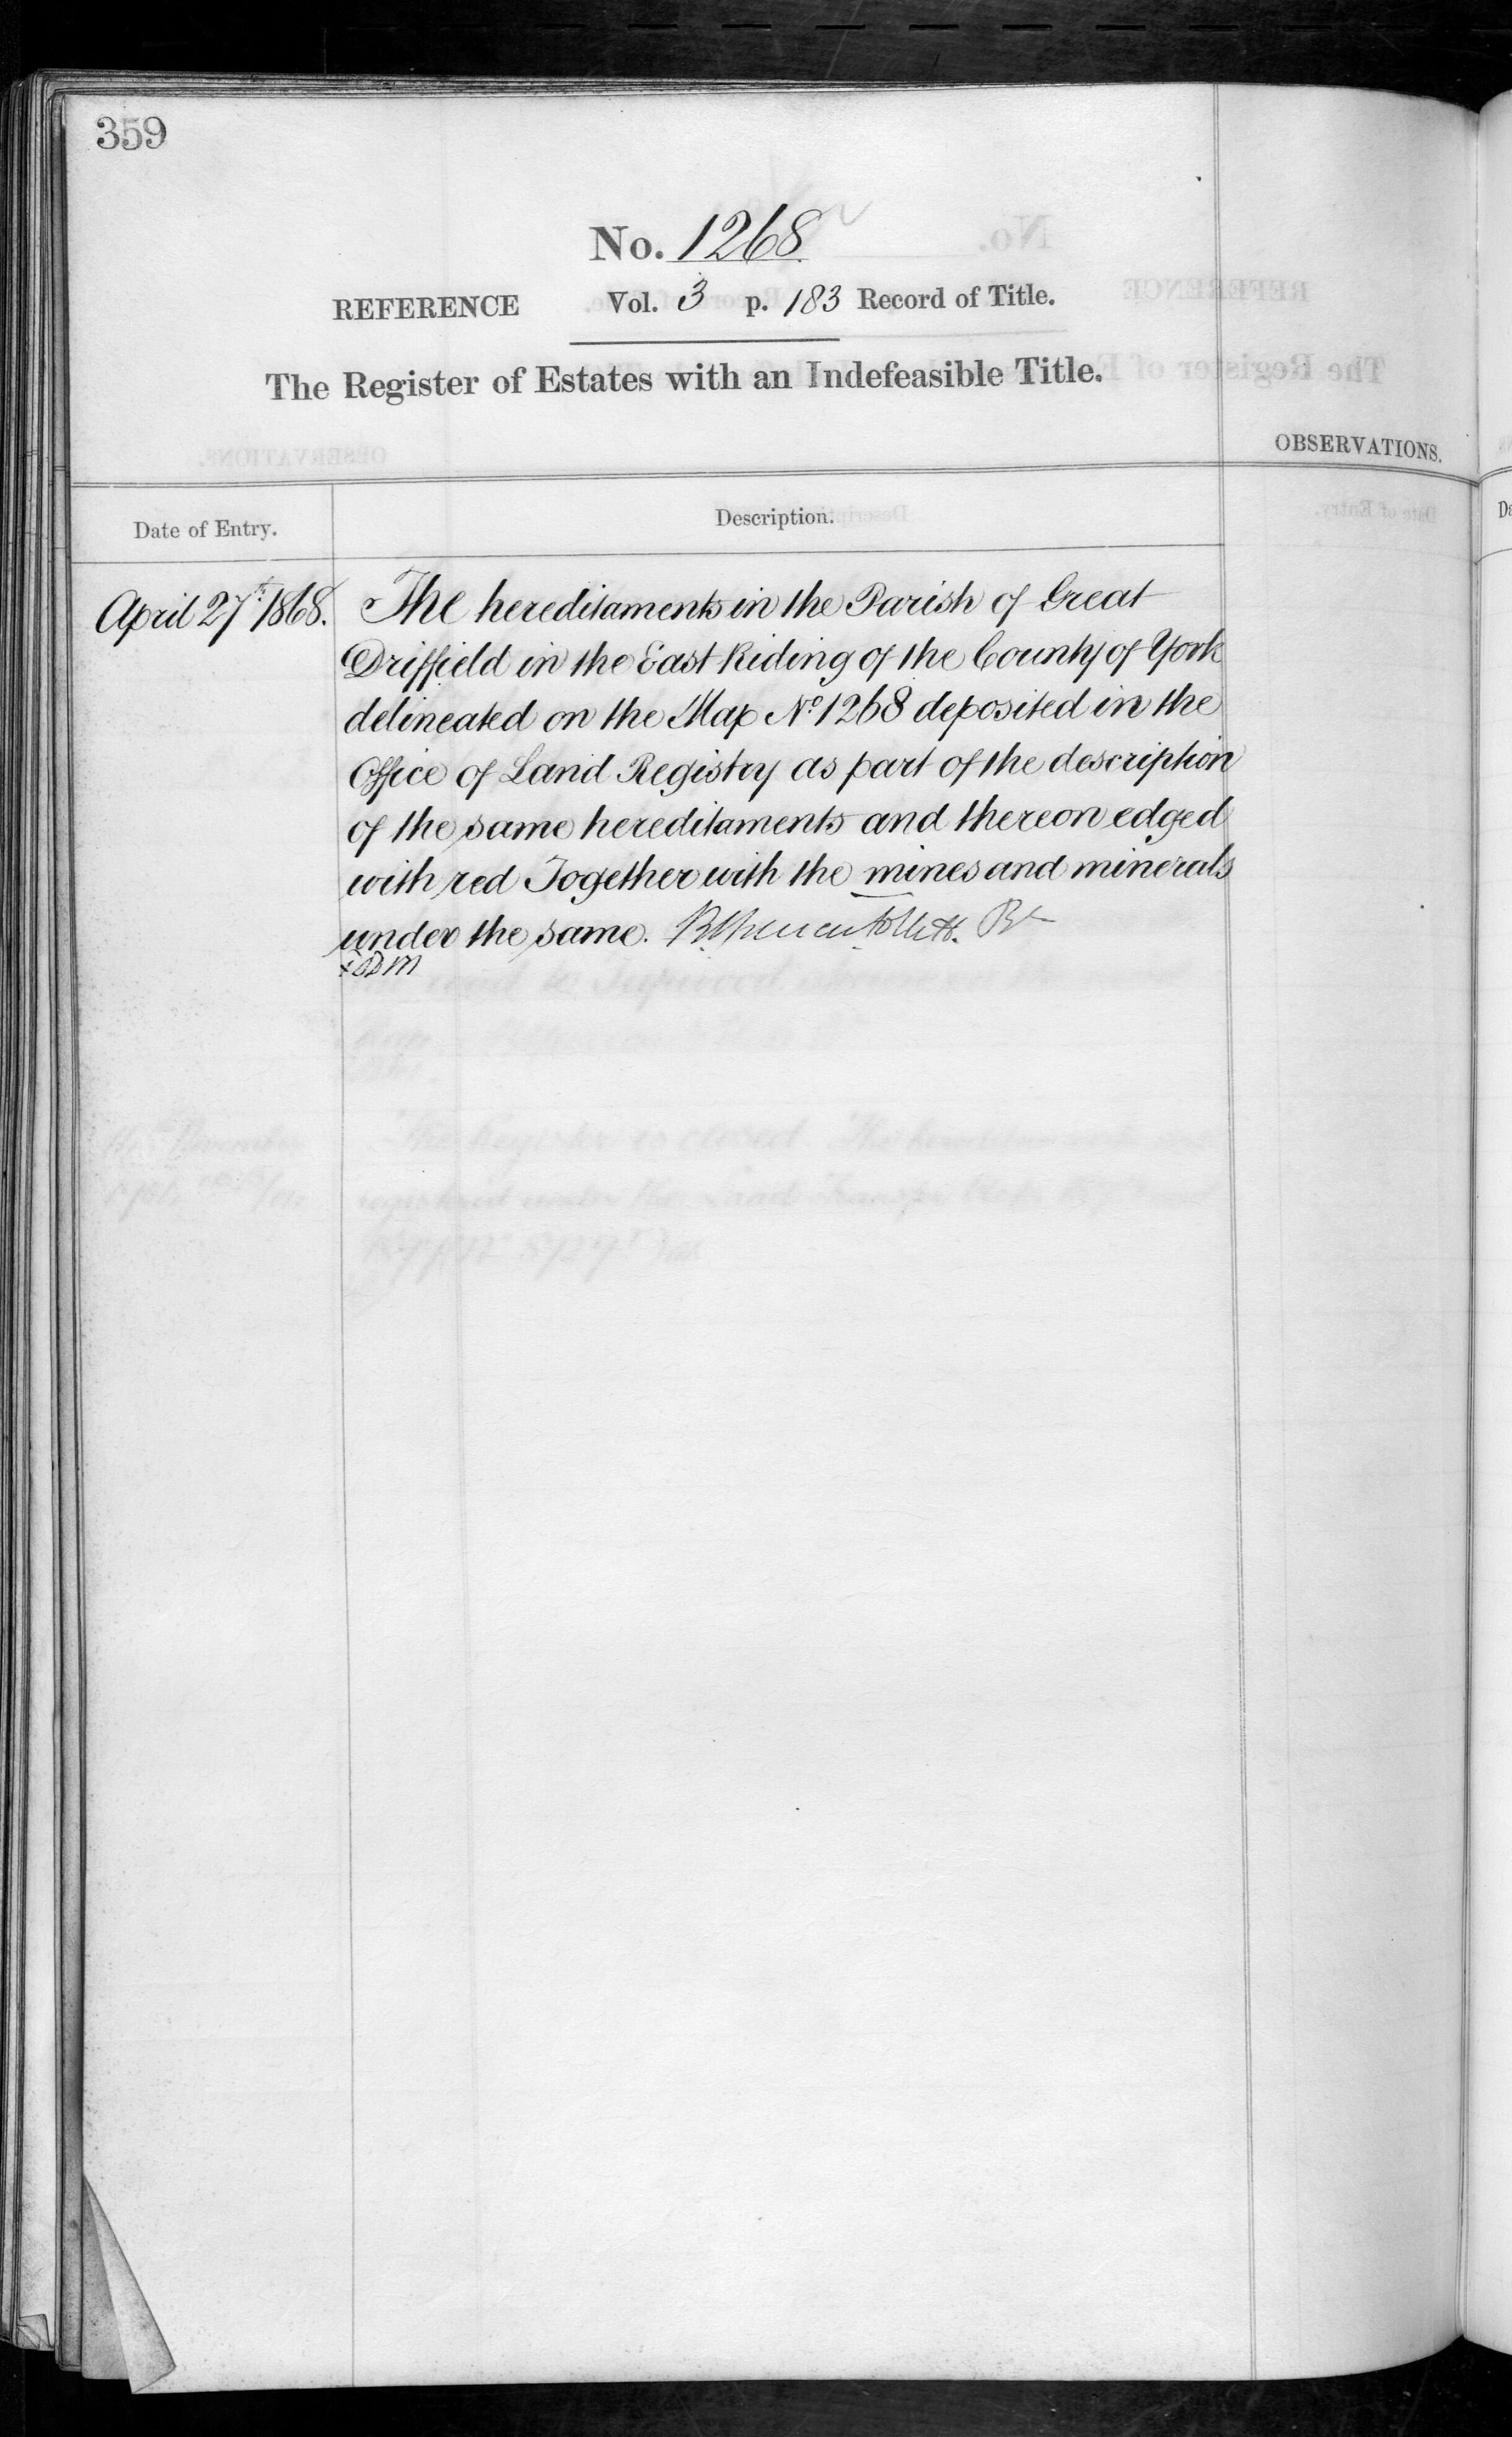 359
No. 1268
REFERENCE Vol. 3 p. 183 Record of Title.
The Register of Estates with an Indefeasible Title.
OBSERVATIONS.
Date of Entry.
Description.
April 27th 1868.
The hereditaments in the Parish of Great
Driffield in the East Riding of the County of York
delineated on the Map No 1268 deposited in the
Office of Land Registry as part of the description
of the same hereditaments and thereon edged
with red Together with the mines and minerals
under the same.